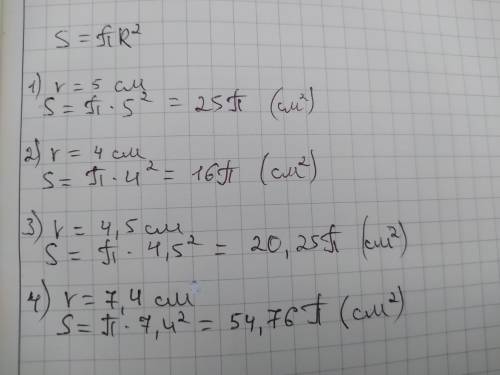 S = πR²
1) r = 5 см
S = π · 5² = 25π (см²)
2) r = 4 см
S = π · 4² = 16π (см²)
3) r = 4,5 см
S = π · 4,5² = 20,25π (см²)
4) r = 7,4 см
S = π · 7,4² = 54,76π (см²)